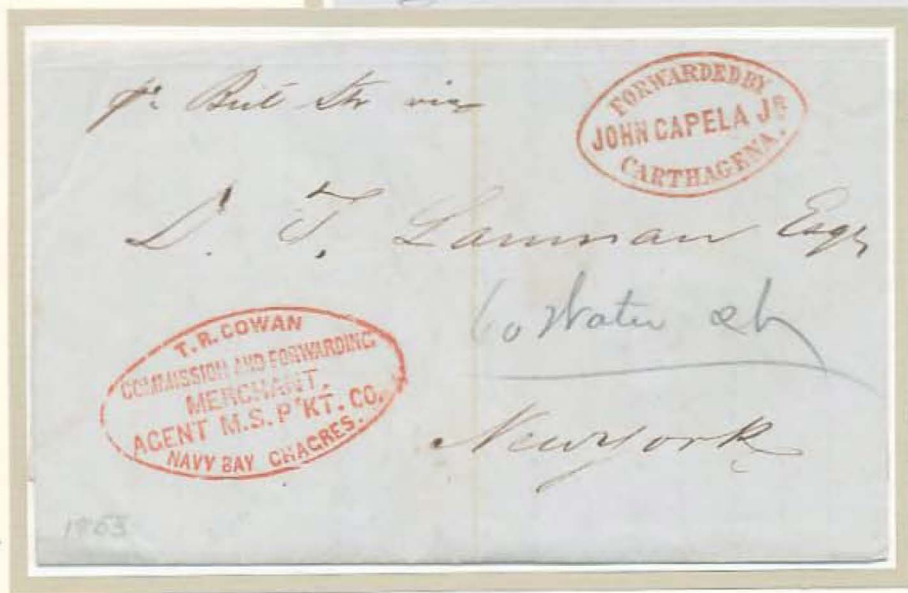 pr Brit Str via
FORWARDED BY
JOHN CAPELA JR
CARTHAGENA.
D. T. Lamman Esqr
60 Water st
T. R. COWAN
COMMISSION AND FORWARDING
MERCHANT,
AGENT M.S.P'KT. CO.
NAVY BAY CHAGRES.
New York
1853